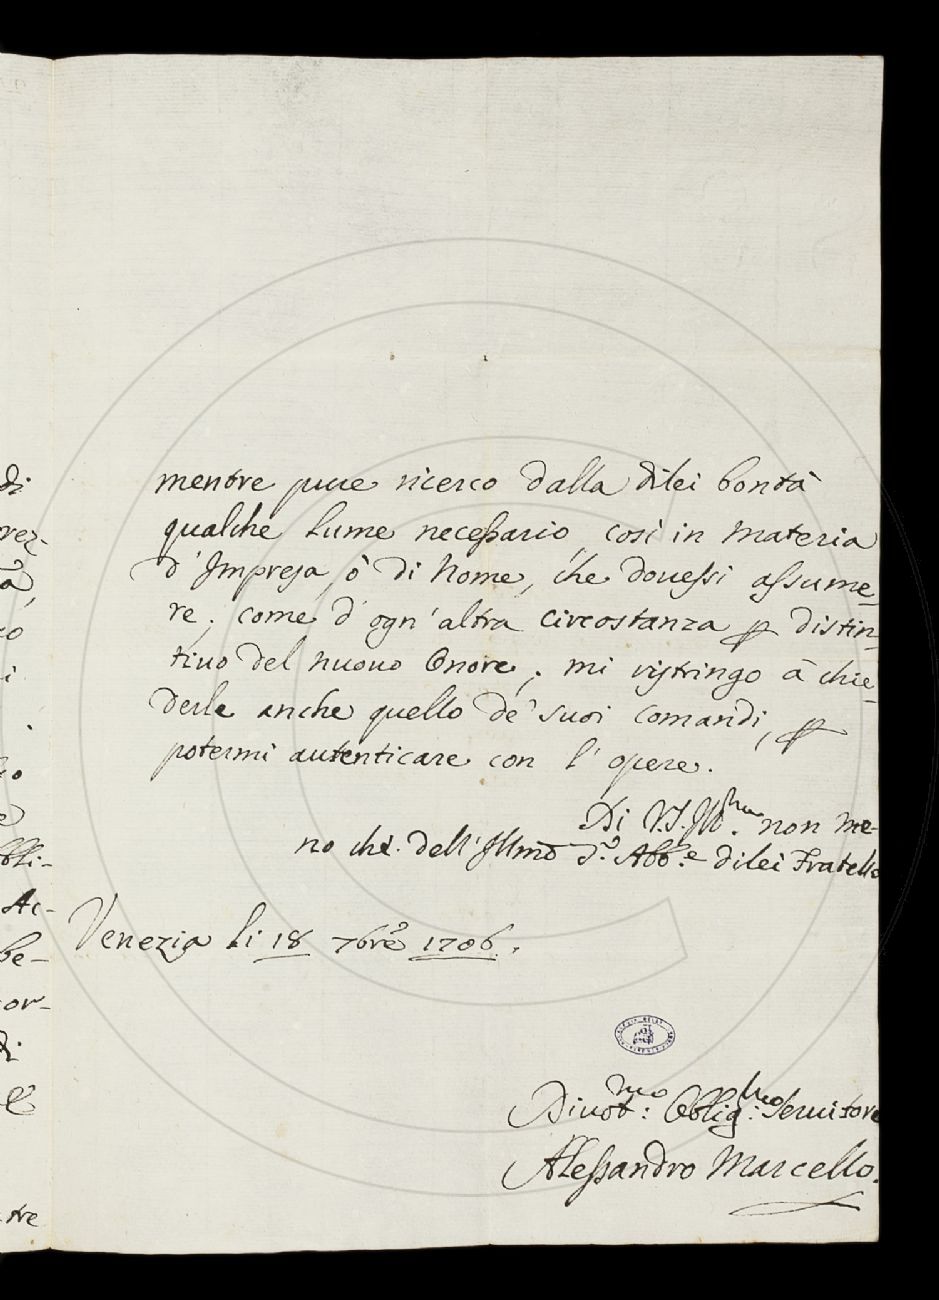 di
rez-
a,
co
i
.
io
e
bli-
Ac-
be-
or-
di
e
tre
mentre pure ricerco dalla dilei bontà
qualche lume necessario, così in materia
d'Impresa, ò di Nome, che douessi assume-
re, come d'ogn'altra circostanza ꝑ distin-
tiuo del nuouo Onore; mi ristringo à chie-
derle anche quello de' suoi comandi, ꝑ
potermi autenticare con l'opere.
Di V.S. Ill.ma non me-
no che dell'Illmo S.r Abb.e dilei Fratello
Venezia li 18 7bre 1706.
Diuot.mo: Oblig.mo: Seruitore
Alessandro Marcello.